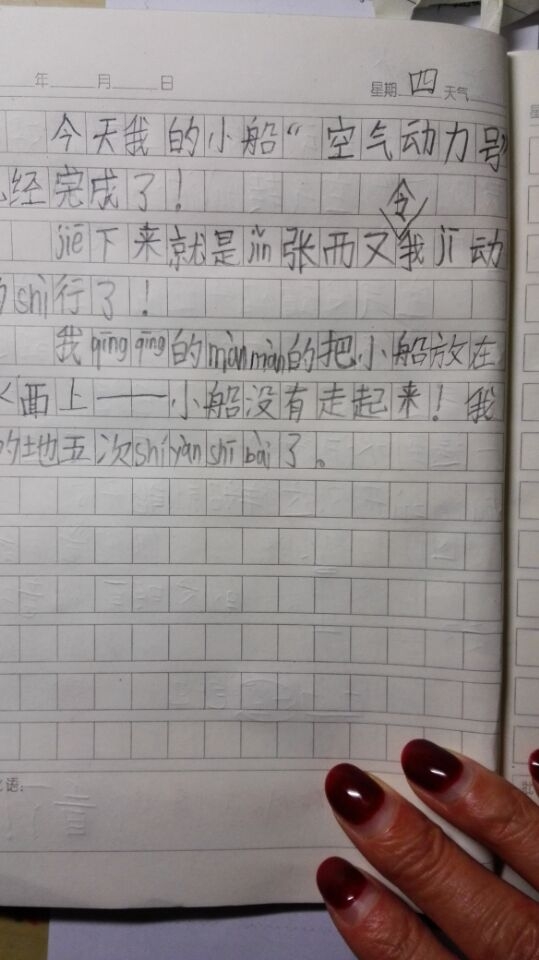 年 月 日 星期 四 天气
今天我的小船“空气动力号”
经完成了！
jiē下来就是jǐn张而又令我jī动
的shì行了！
我qīng qīng的màn màn的把小船放在
面上——小船没有走起来！我
的地五次shí yàn shī bài了。
语：